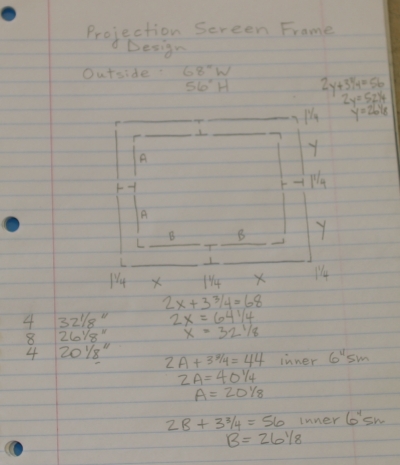 Projection Screen Frame
Design
Outside: 68" W
56" H
2y+3 3/4=56
2y=52 1/4
y=26 1/8
1 1/4
A
Y
1 1/4
A
B B
Y
1 1/4 X 1 1/4 X 1 1/4
2x+3 3/4=68
2x = 64 1/4
x = 32 1/8
4 32 1/8"
8 26 1/8"
4 20 1/8"
2A+3 3/4=44 inner 6" sm
2A=40 1/4
A=20 1/8
2B + 3 3/4 = 56 inner 6" sm
B=26 1/8